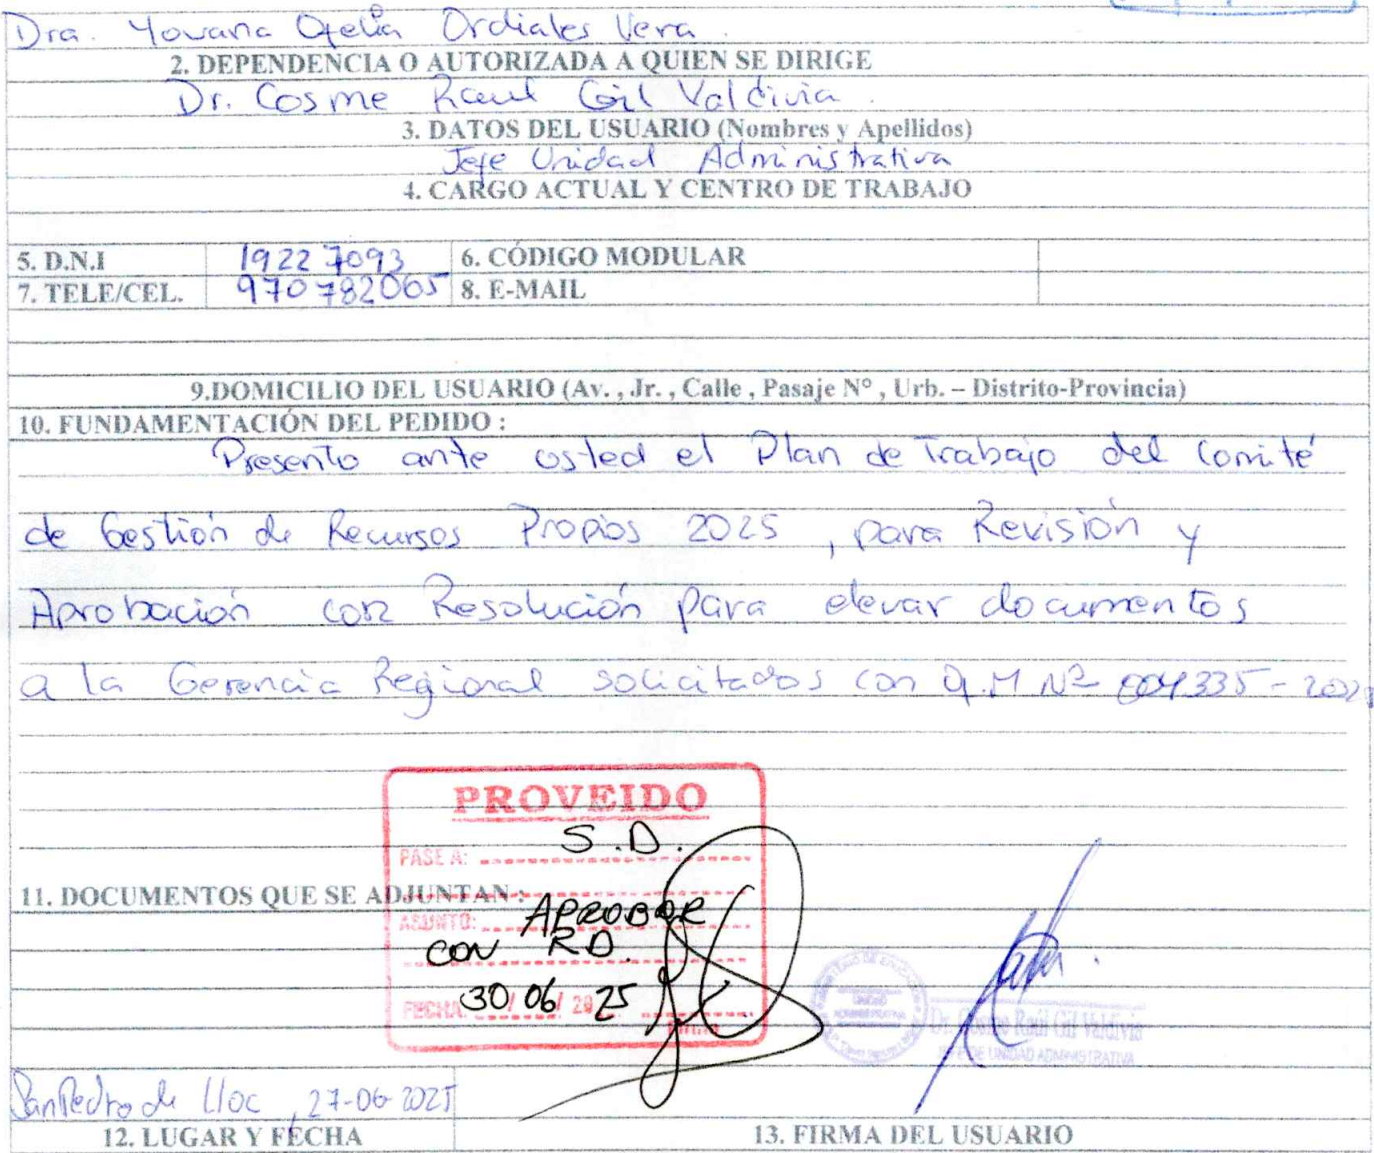 Dra. Yovana Ofelia Ordiales Vera.
2. DEPENDENCIA O AUTORIZADA A QUIEN SE DIRIGE
Dr. Cosme Raul Gil Valdivia.
3. DATOS DEL USUARIO (Nombres y Apellidos)
Jefe Unidad Administrativa
4. CARGO ACTUAL Y CENTRO DE TRABAJO
5. D.N.I 19227093 6. CÓDIGO MODULAR
7. TELE/CEL. 970782065 8. E-MAIL
9.DOMICILIO DEL USUARIO (Av. , Jr. , Calle , Pasaje N° , Urb. – Distrito-Provincia)
10. FUNDAMENTACIÓN DEL PEDIDO :
Presento ante usted el Plan de Trabajo del Comité
de Gestión de Recursos Propios 2025 , para Revisión y
Aprobación con Resolución para elevar documentos
a la Gerencia Regional solicitados con O.M Nº 004335-
PROVEIDO
PASE A: S.D.
11. DOCUMENTOS QUE SE ADJUNTAN :
ASUNTO: APROBAR
CON RD.
FECHA: 30/06/2025
Dr. Cosme Raúl Gil Valdivia
JEFE DE UNIDAD ADMINISTRATIVA
San Pedro de Lloc , 27-06-2025
12. LUGAR Y FECHA 13. FIRMA DEL USUARIO